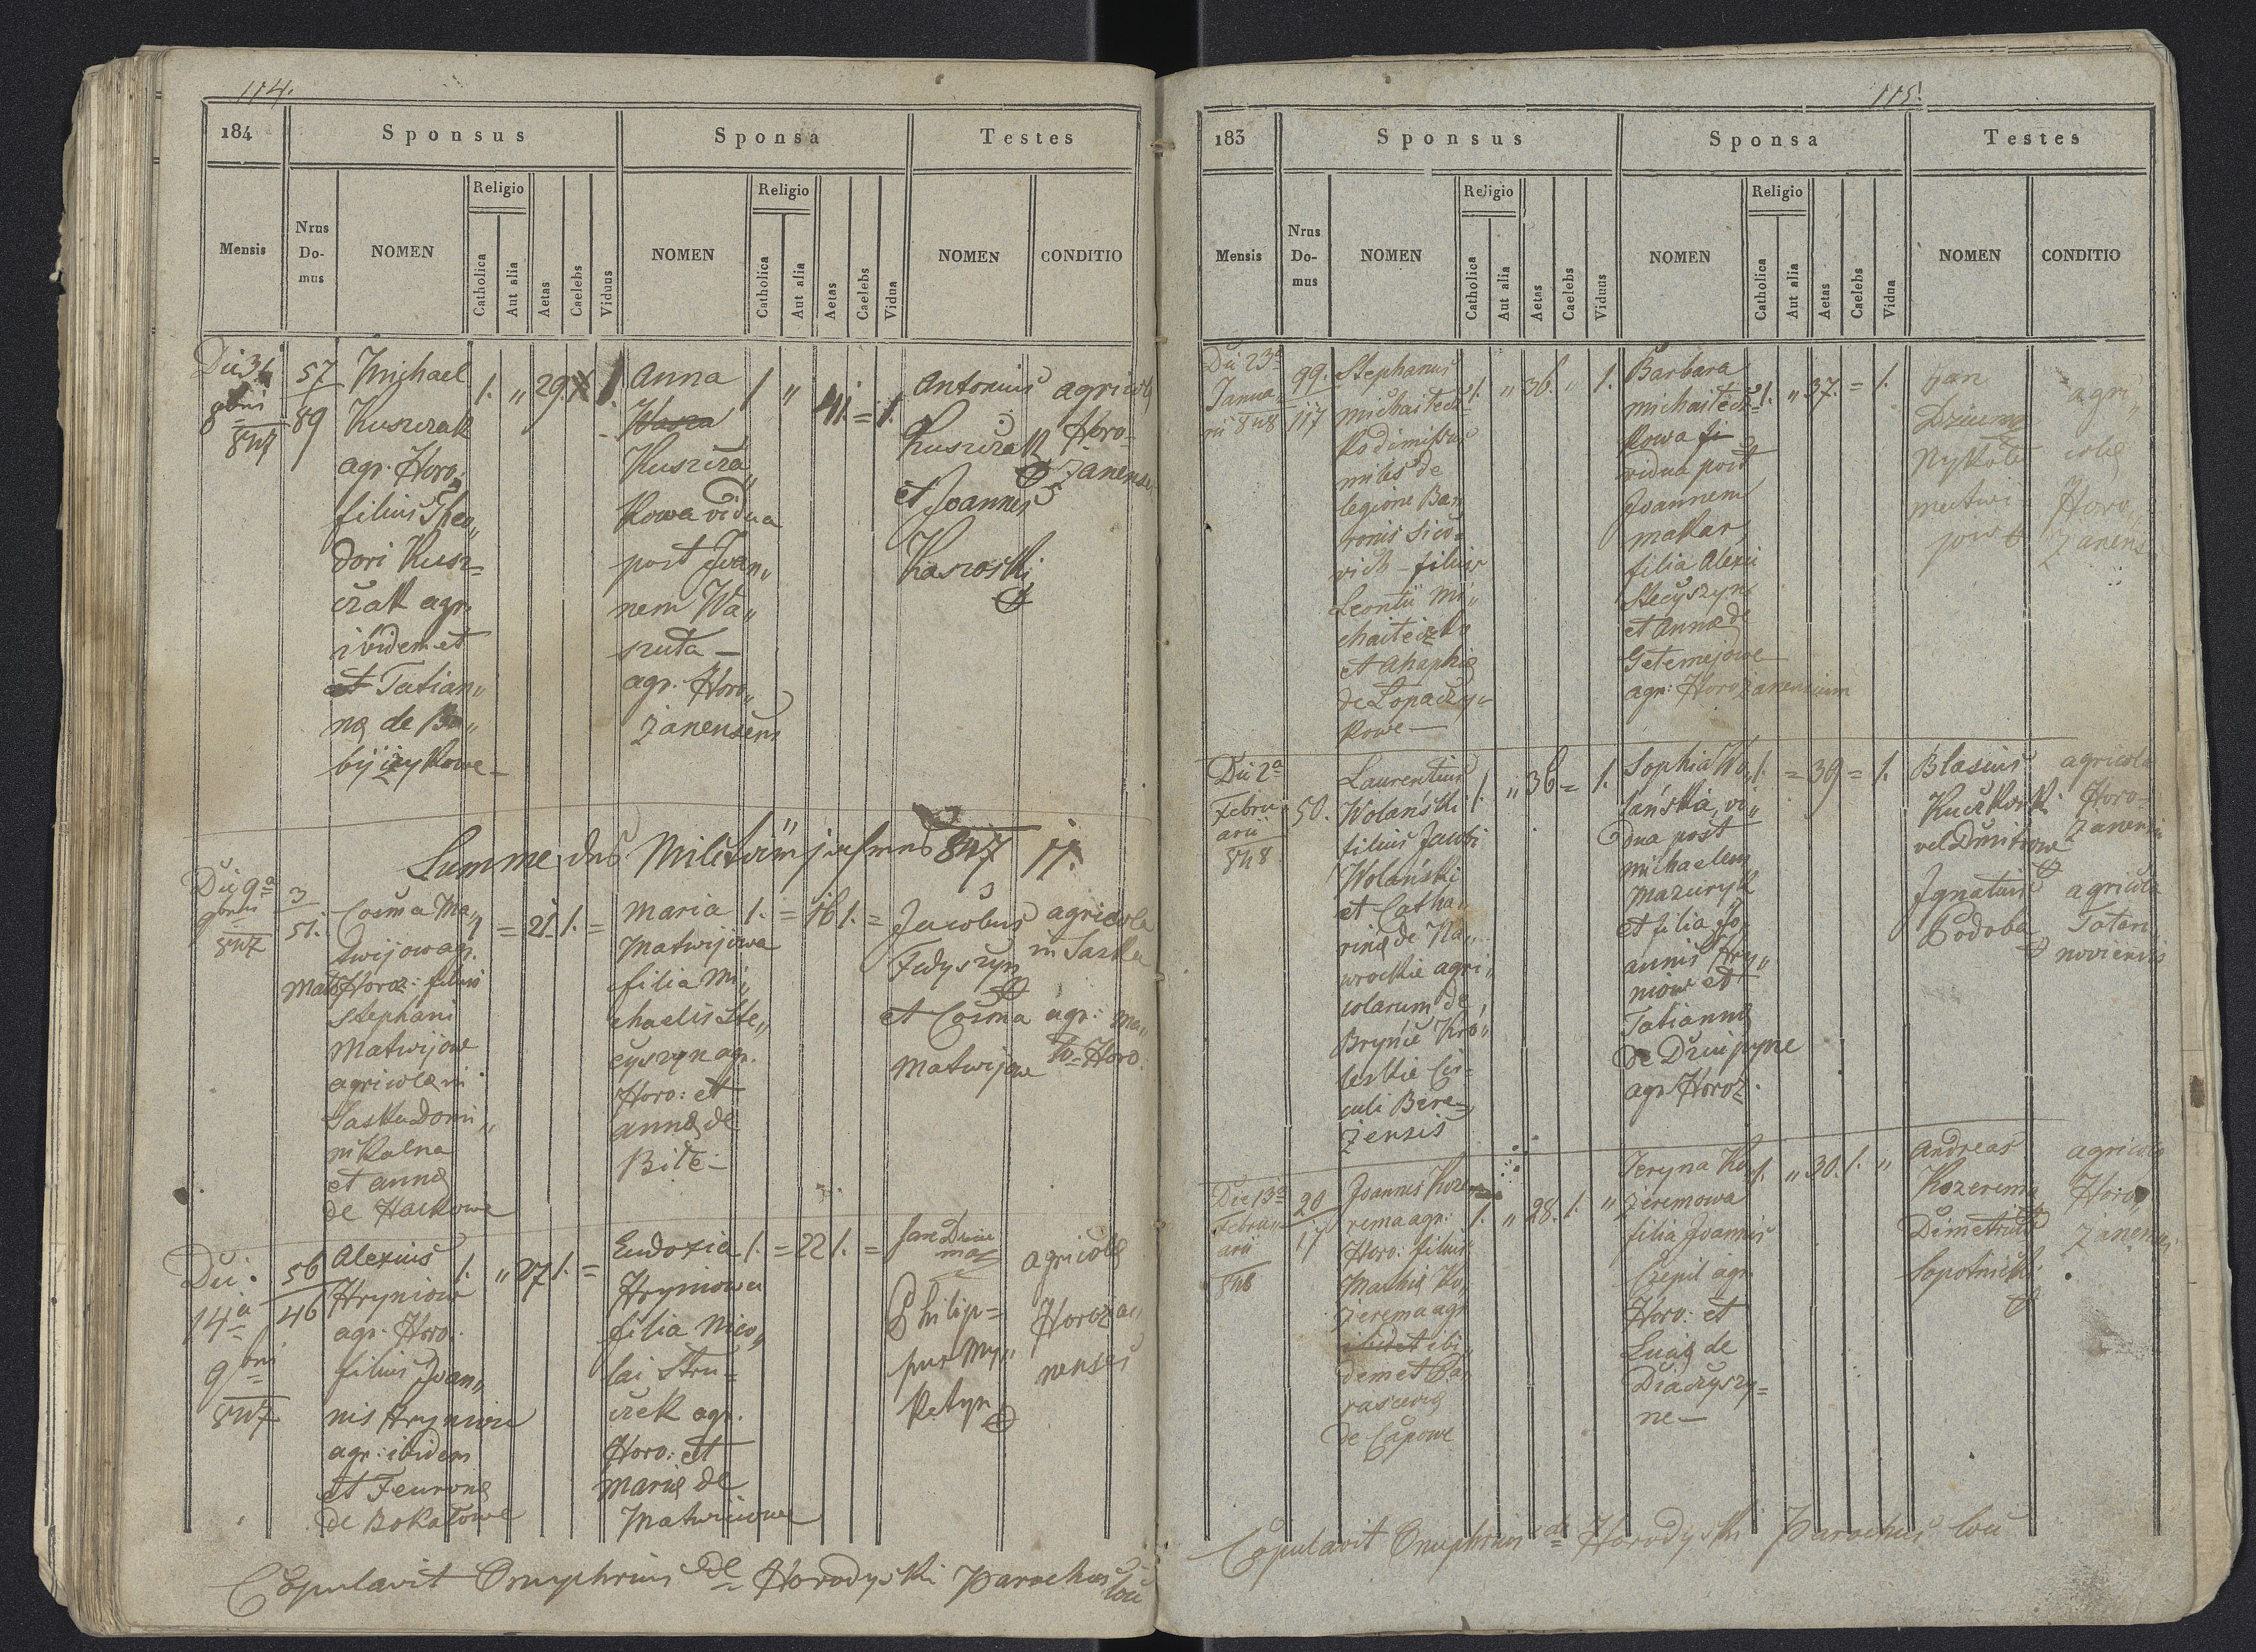 114.
184 Sponsus Sponsa Testes
Mensis Nrus Do- mus NOMEN Religio Catholica Aut alia Aetas Caelebs Viduus NOMEN Religio Catholica Aut alia Aetas Caelebs Vidua NOMEN CONDITIO
57
89
847
Michael
Kuszczak
agr. Horo„
filius Theo„
dori Kusz=
czak agr.
ibidem et
et Tatian„
nę de Bo„
1. „ 29. 1.
Anna
Wasza
Kuszcza„
kowa vidua
post Joan„
nem Wa„
szuta —
agr. Horo„
żanensem
1 „ 41. = 1.
Antonius
Kuszczak
et Joannes
agricolę
Horo=
żanenses
Summe des Militärjahres 847 11.
Die 9a
9bris
847
3
51.
Cosma Ma„
twijow agr.
Mało Horoż: filius
Stephani
Matwijow
agricolę in
et annę
1 = 21. 1. =
Maria
Matwijowa
filia Mi„
chaelis Ste„
cyszyn agr.
Horo: et
annę de
Bile —
1. = 16 1. =
Jacobus
Fedyszyn
et Cosma
Matwijow
agricola
agr: Ma„
ło-Horo.
Die
14a
9bris
847
56
46
Alexius
Hryniow
agr. Horo.
filius Joan„
nis Hryniow
agr: ibidem
et Feuronę
de Bokałowe
1. „ 27 1. =
Eudoxia
Hryniowa
filia Nico„
lai Stru=
czek agr.
Horo: et
Marię de
1. = 22 1. =
Philip=
pus My„
ketyn
agricolę
Horoża„
nenses
Copulavit Onuphrius de Horodyski Parochus loci
115.
183 Sponsus Sponsa Testes
Mensis Nrus Do- mus NOMEN Religio Catholica Aut alia Aetas Caelebs Viduus NOMEN Religio Catholica Aut alia Aetas Caelebs Vidua NOMEN CONDITIO
Die 23a
Janua„
rii 848
99.
117
Stephanus
ko dimissus
miles de
legione Ba„
ronis Sivo=
vich - filius
Leontii Mi„
et Ahaphię
de Łopaczy„
kowe —
1. „ 36. „ 1.
Barbara
kowa
vidua post
Joannem
Makar,
filia Alexii
Stecyszyn
et Annę de
agr: Horożanensium
1. „ 37. = 1.
agri„
colę
Horo„
żanens
Die 2a
Febru„
arii
848
50.
Laurentius
Wolański
filius Jacobi
Wolański
et Catha„
rinę de Na„
wrockie agri„
colarum de
Brynie Kró„
leskie Cir„
culi Brze„
żensis
1. „ 36 = 1.
Sophia Wo„
lańska, vi„
dua post
Michaelem
Mazuryk
et filia Jo„
annis Hry„
niow et
Tatiannę
agr. Horoż.
1. = 39 = 1.
Blasius
vel Dmitrow
Ignatius
Podoba
agricola
Horo=
żanensis
agricola
Tatari„
noviensis
Die 13a
Febru„
arii
848
20
17
Joannes Koże„
rema agr:
Horo: filius
Mathię Ko„
żerema agr.
ibi„
dem et Pa„
rascevię
1. „ 28. 1. „
Jeryna Ko„
żeremowa
filia Joannis
Czepil agr.
Horo: et
Lucię de
Diaczyszy=
ne —
1. „ 30. 1. „
Andreas
Kożerema
Demetrius
Sopotnicki
agricolę
Horo„
żanenses
Copulavit Onuphrius de Horodyski Parochus loci